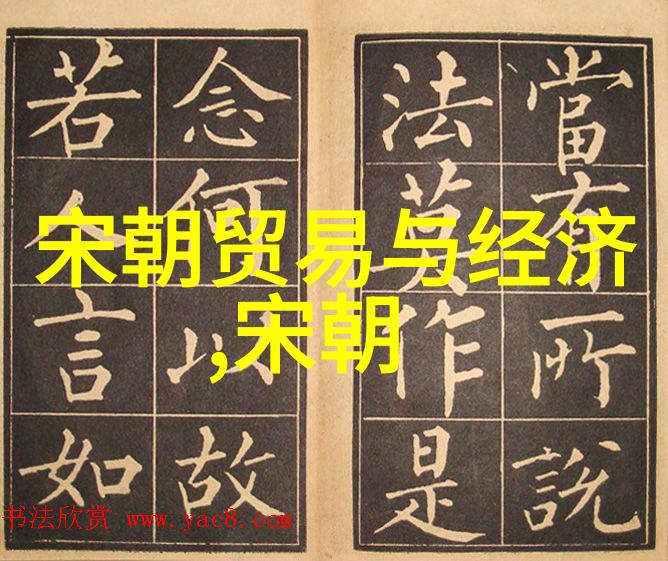 當有所說
法莫作是
念何以故
若人言如
宋朝贸易与经济
,宋朝
书法欣赏 www.yac8.com